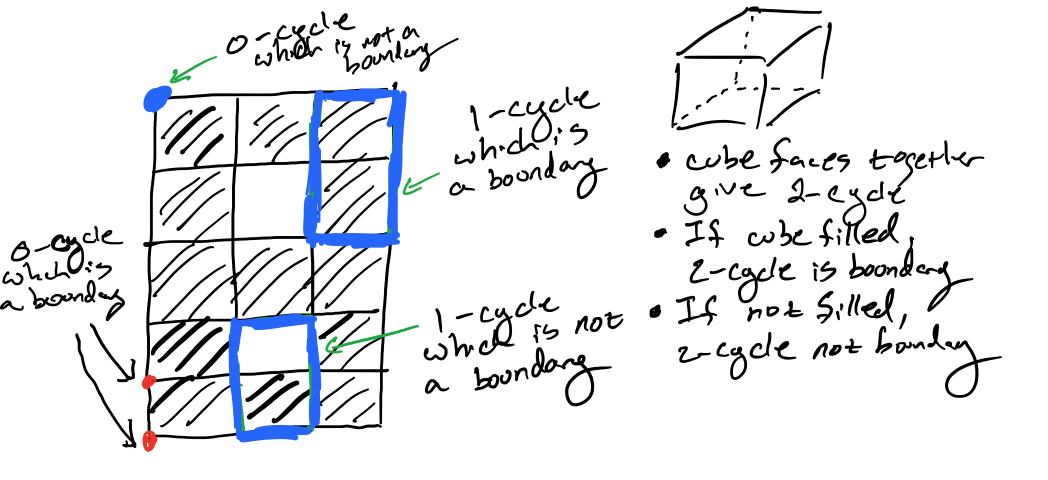 0-cycle
which is not a
boundary
1-cycle
which is
a boundary
0-cycle
which is
a boundary
1-cycle
which is not
a boundary
• cube faces together
give 2-cycle
• If cube filled,
2-cycle is boundary
• If not filled,
2-cycle not boundary